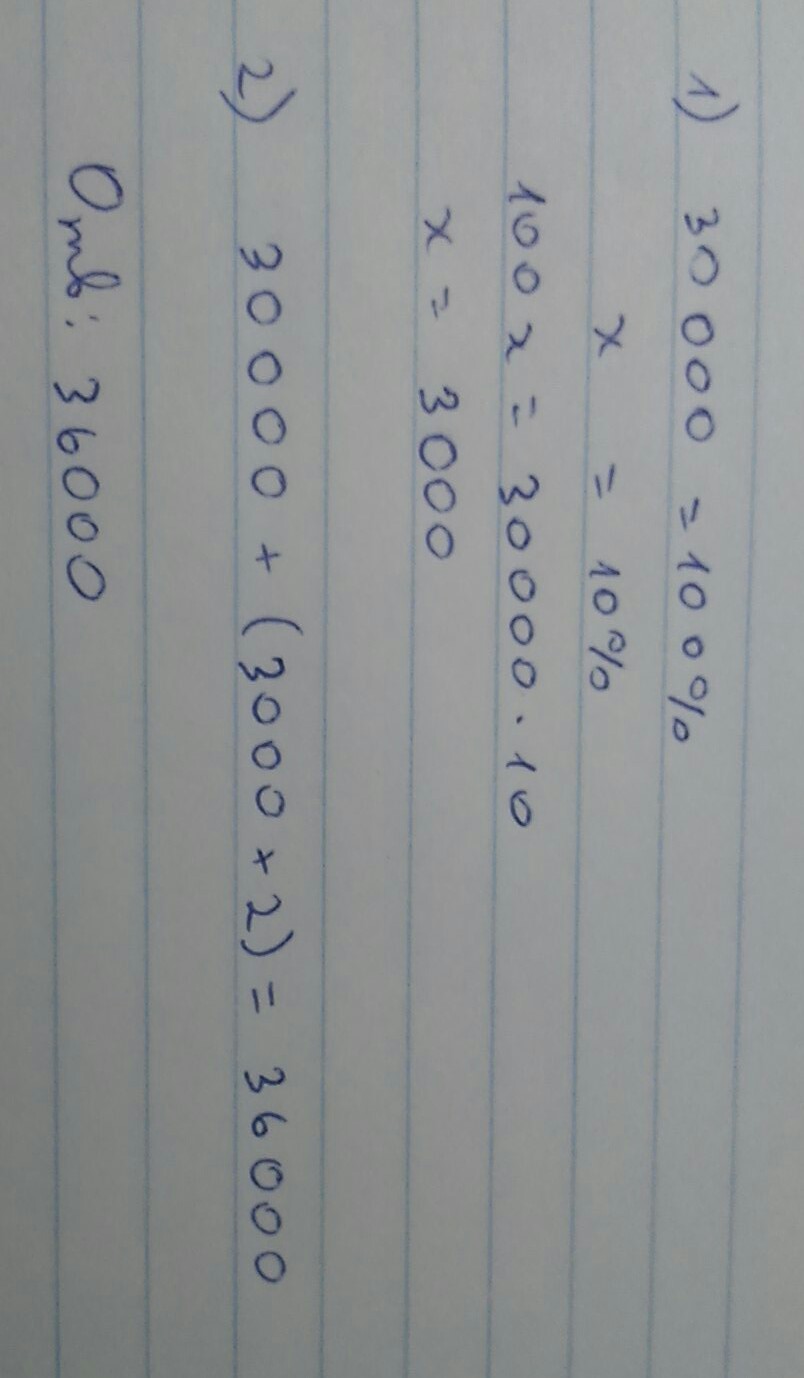 1) 30000 = 100%
x = 10%
100x = 30000 · 10
x = 3000
2) 30000 + (3000 × 2) = 36000
Отв: 36000